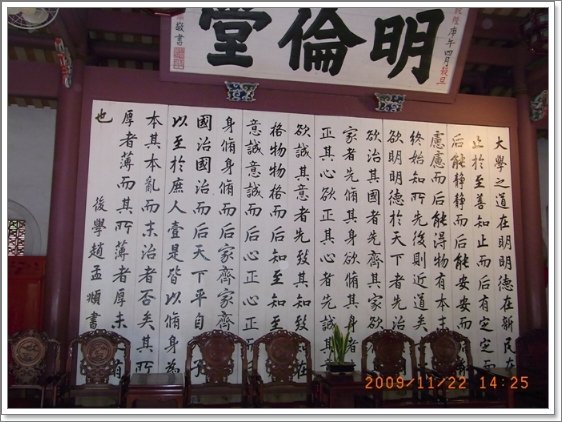 乾隆庚午四月穀旦
明倫堂
敬書
大學之道在明明德在新民在
止於至善知止而后有定定而
后能靜靜而后能安安而
慮慮而后能得物有本末
終始知所先後則近道矣
欲明明德於天下者先治
欲治其國者先齊其家欲
家者先脩其身欲脩其身者
正其心欲正其心者先誠其
欲誠其意者先致其知致知在
格物物格而后知至知至
意誠意誠而后心正心正
身脩身脩而后家齊家齊
國治國治而后天下平自
以至於庶人壹是皆以脩身為
本其本亂而末治者否矣其所
厚者薄而其所薄者厚未
也
後學趙孟頫書
2009/11/22 14:25